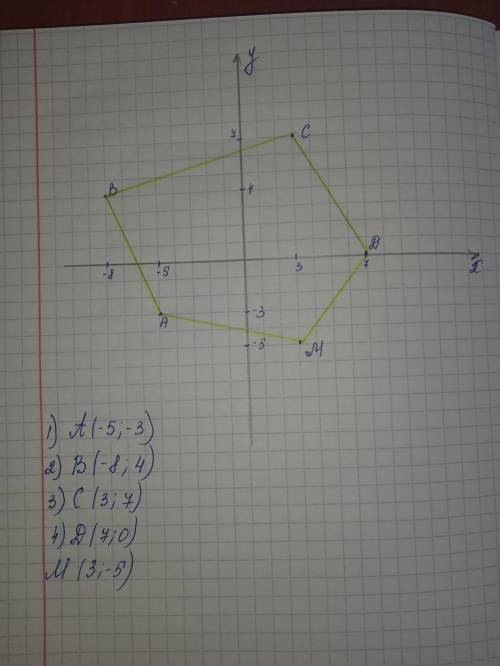 y
7
C
B
4
D
-8
-5
3
7
x
A
-3
-5
M
1) A(-5; -3)
2) B(-8; 4)
3) C(3; 7)
4) D(7; 0)
M(3; -5)